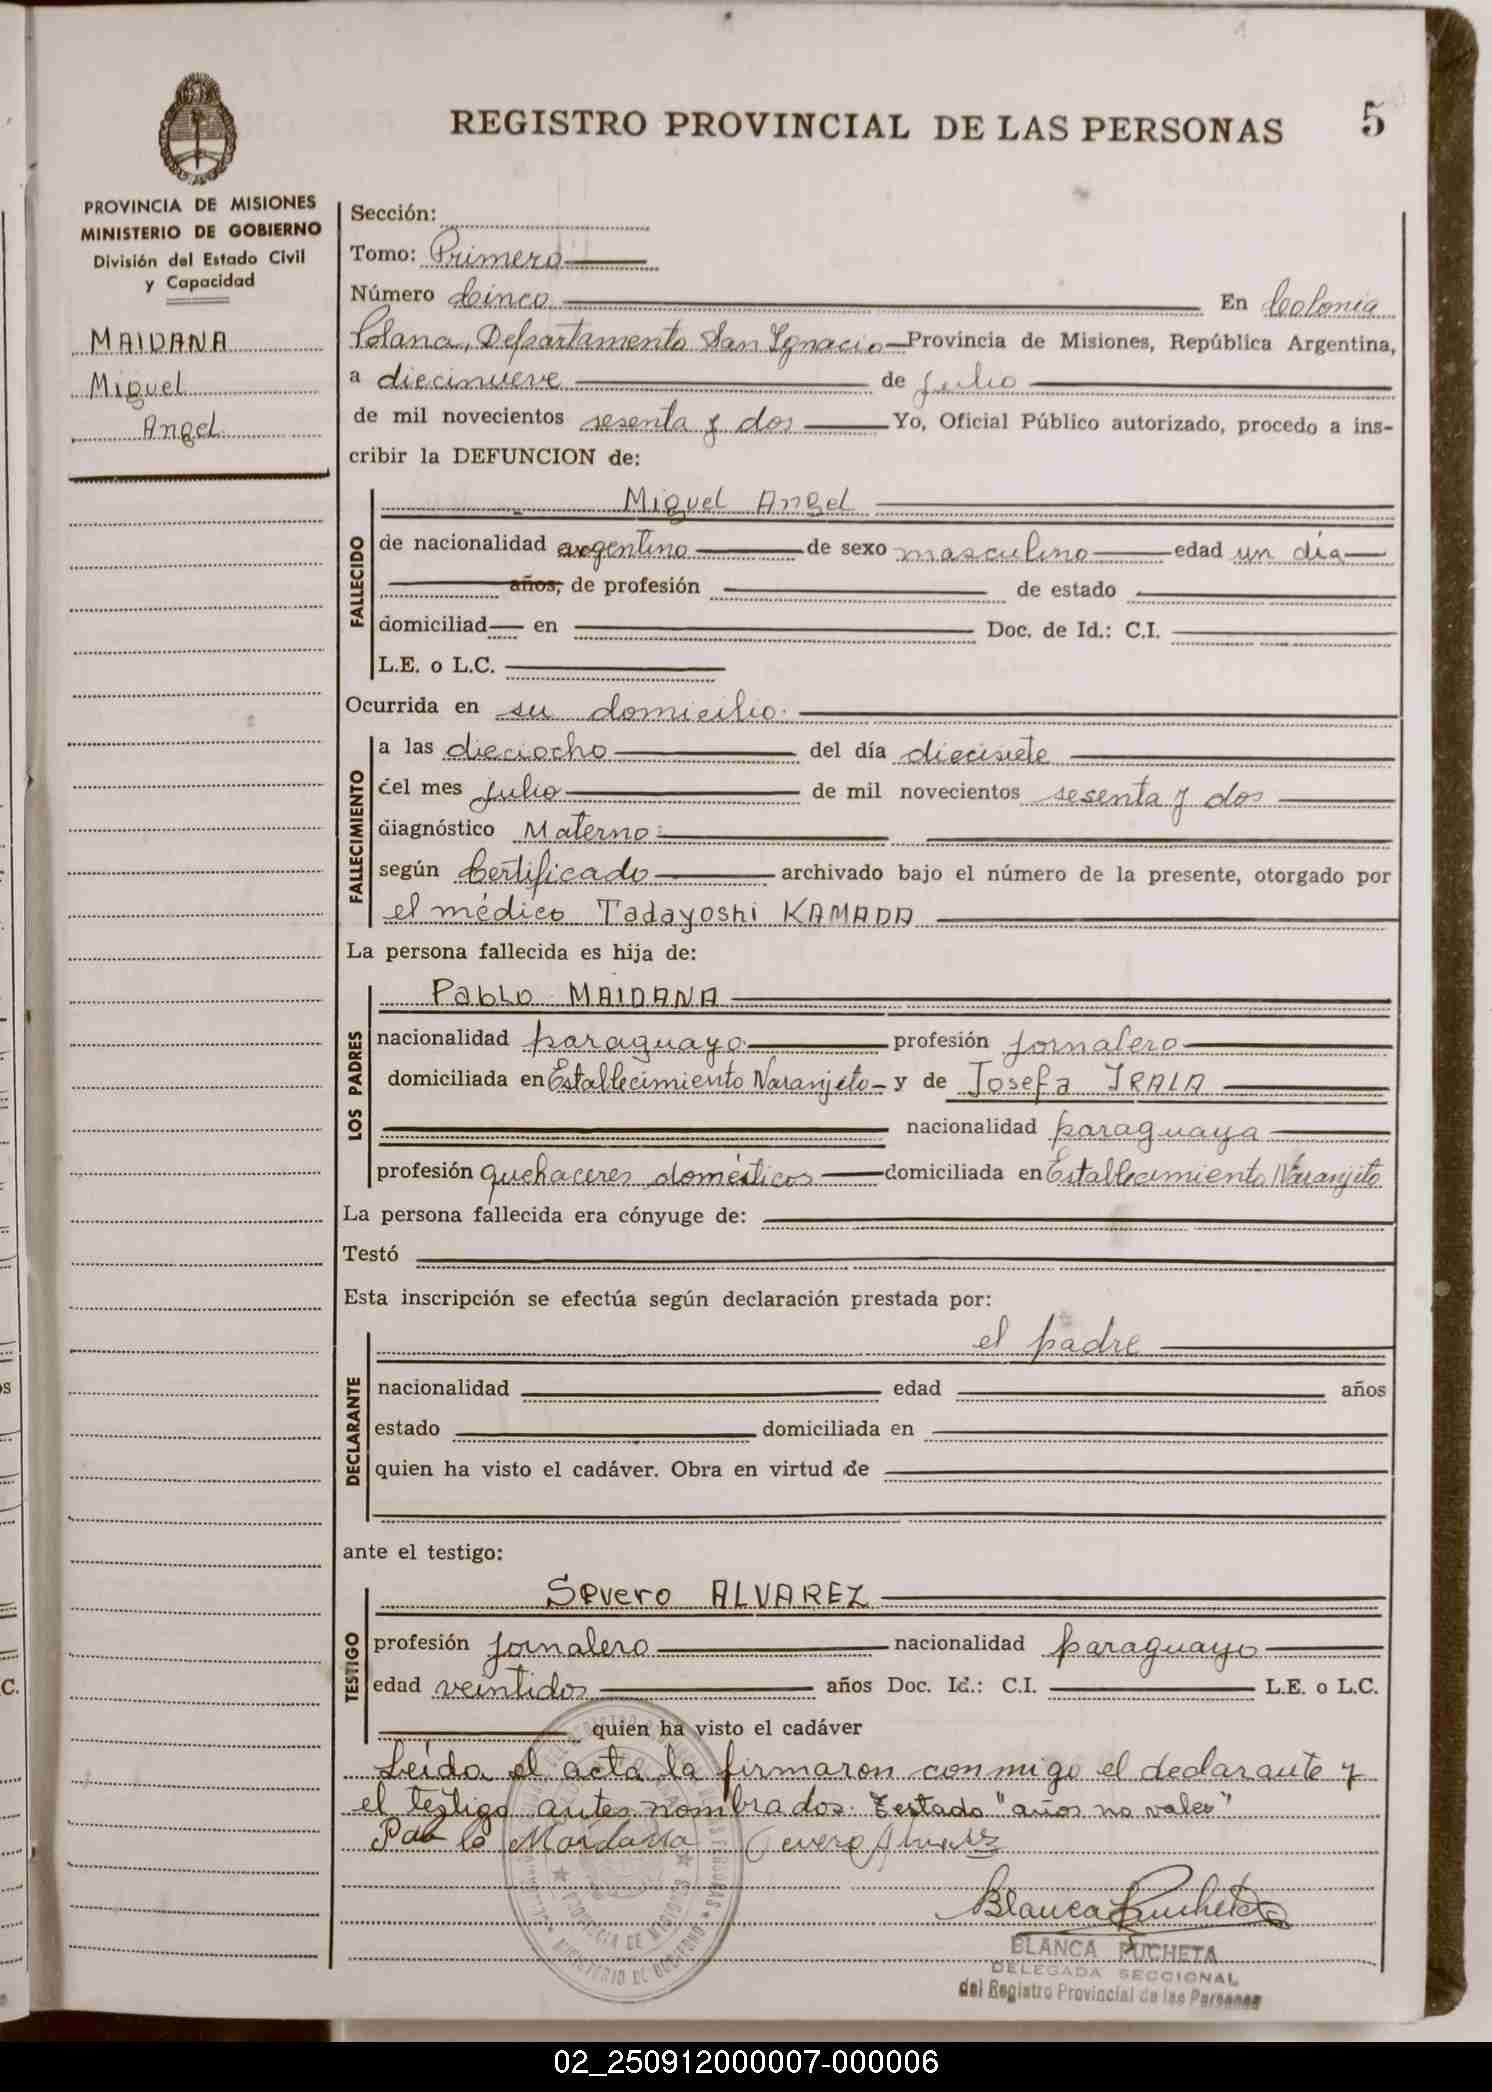 REGISTRO PROVINCIAL DE LAS PERSONAS
5
PROVINCIA DE MISIONES
MINISTERIO DE GOBIERNO
División del Estado Civil
y Capacidad
MAIDANA
Miguel
Angel
Sección:
Tomo: Primero
Número Cinco En Colonia
Polana, Departamento San Ignacio Provincia de Misiones, República Argentina,
a diecinueve de julio
de mil novecientos sesenta y dos Yo, Oficial Público autorizado, procedo a ins-
cribir la DEFUNCION de:
FALLECIDO
Miguel Angel
de nacionalidad argentino de sexo masculino edad un día
años, de profesión de estado
domiciliad en Doc. de Id.: C.I.
L.E. o L.C.
Ocurrida en su domicilio.
FALLECIMIENTO
a las dieciocho del día diecisiete
del mes julio de mil novecientos sesenta y dos
diagnóstico Materno
según Certificado archivado bajo el número de la presente, otorgado por
el médico Tadayoshi KAMADA
La persona fallecida es hija de:
LOS PADRES
Pablo MAIDANA
nacionalidad paraguayo profesión jornalero
domiciliada en Establecimiento Naranjito y de Josefa IRALA
nacionalidad paraguaya
profesión quehaceres domésticos domiciliada en Establecimiento Naranjito
La persona fallecida era cónyuge de:
Testó
Esta inscripción se efectúa según declaración prestada por:
DECLARANTE
el padre
nacionalidad edad años
estado domiciliada en
quien ha visto el cadáver. Obra en virtud de
ante el testigo:
TESTIGO
Severo ALVAREZ
profesión jornalero nacionalidad paraguayo
edad veintidos años Doc. Id.: C.I. L.E. o L.C.
quien ha visto el cadáver
Leída el acta la firmaron conmigo el declarante y
el testigo antes nombrados. Testado "años no vale"
Pablo Maidana Severo Alvarez
Blanca Pucheta
BLANCA PUCHETA
DELEGADA SECCIONAL
del Registro Provincial de las Personas
PROVINCIA DE MISIONES
MINISTERIO DE GOBIERNO
02_250912000007-000006